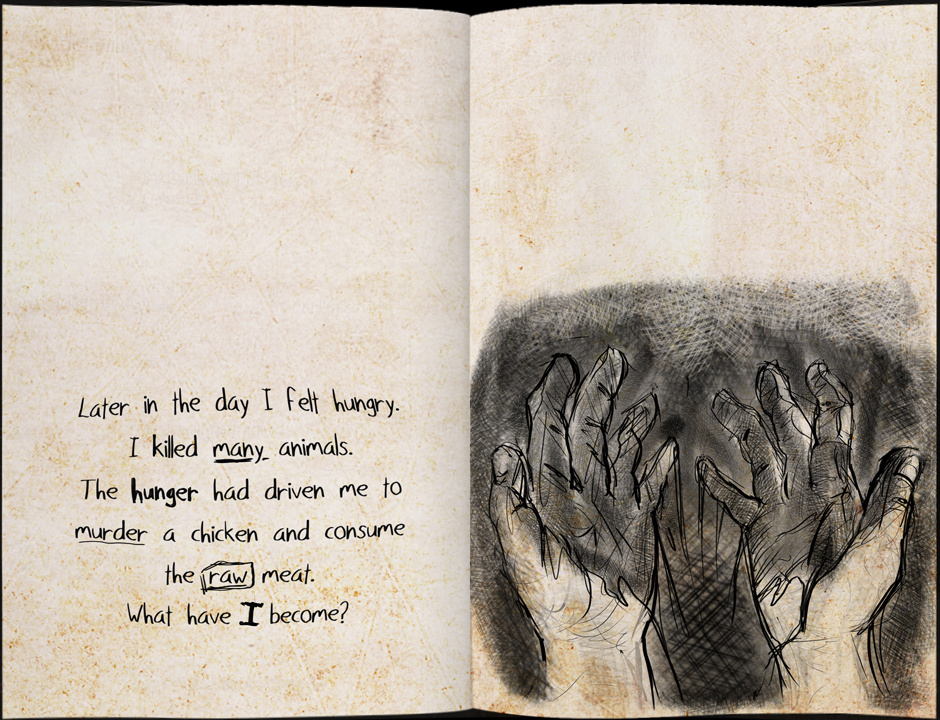 Later in the day I felt hungry.
I killed many animals.
The hunger had driven me to
murder a chicken and consume
the raw meat.
What have I become?